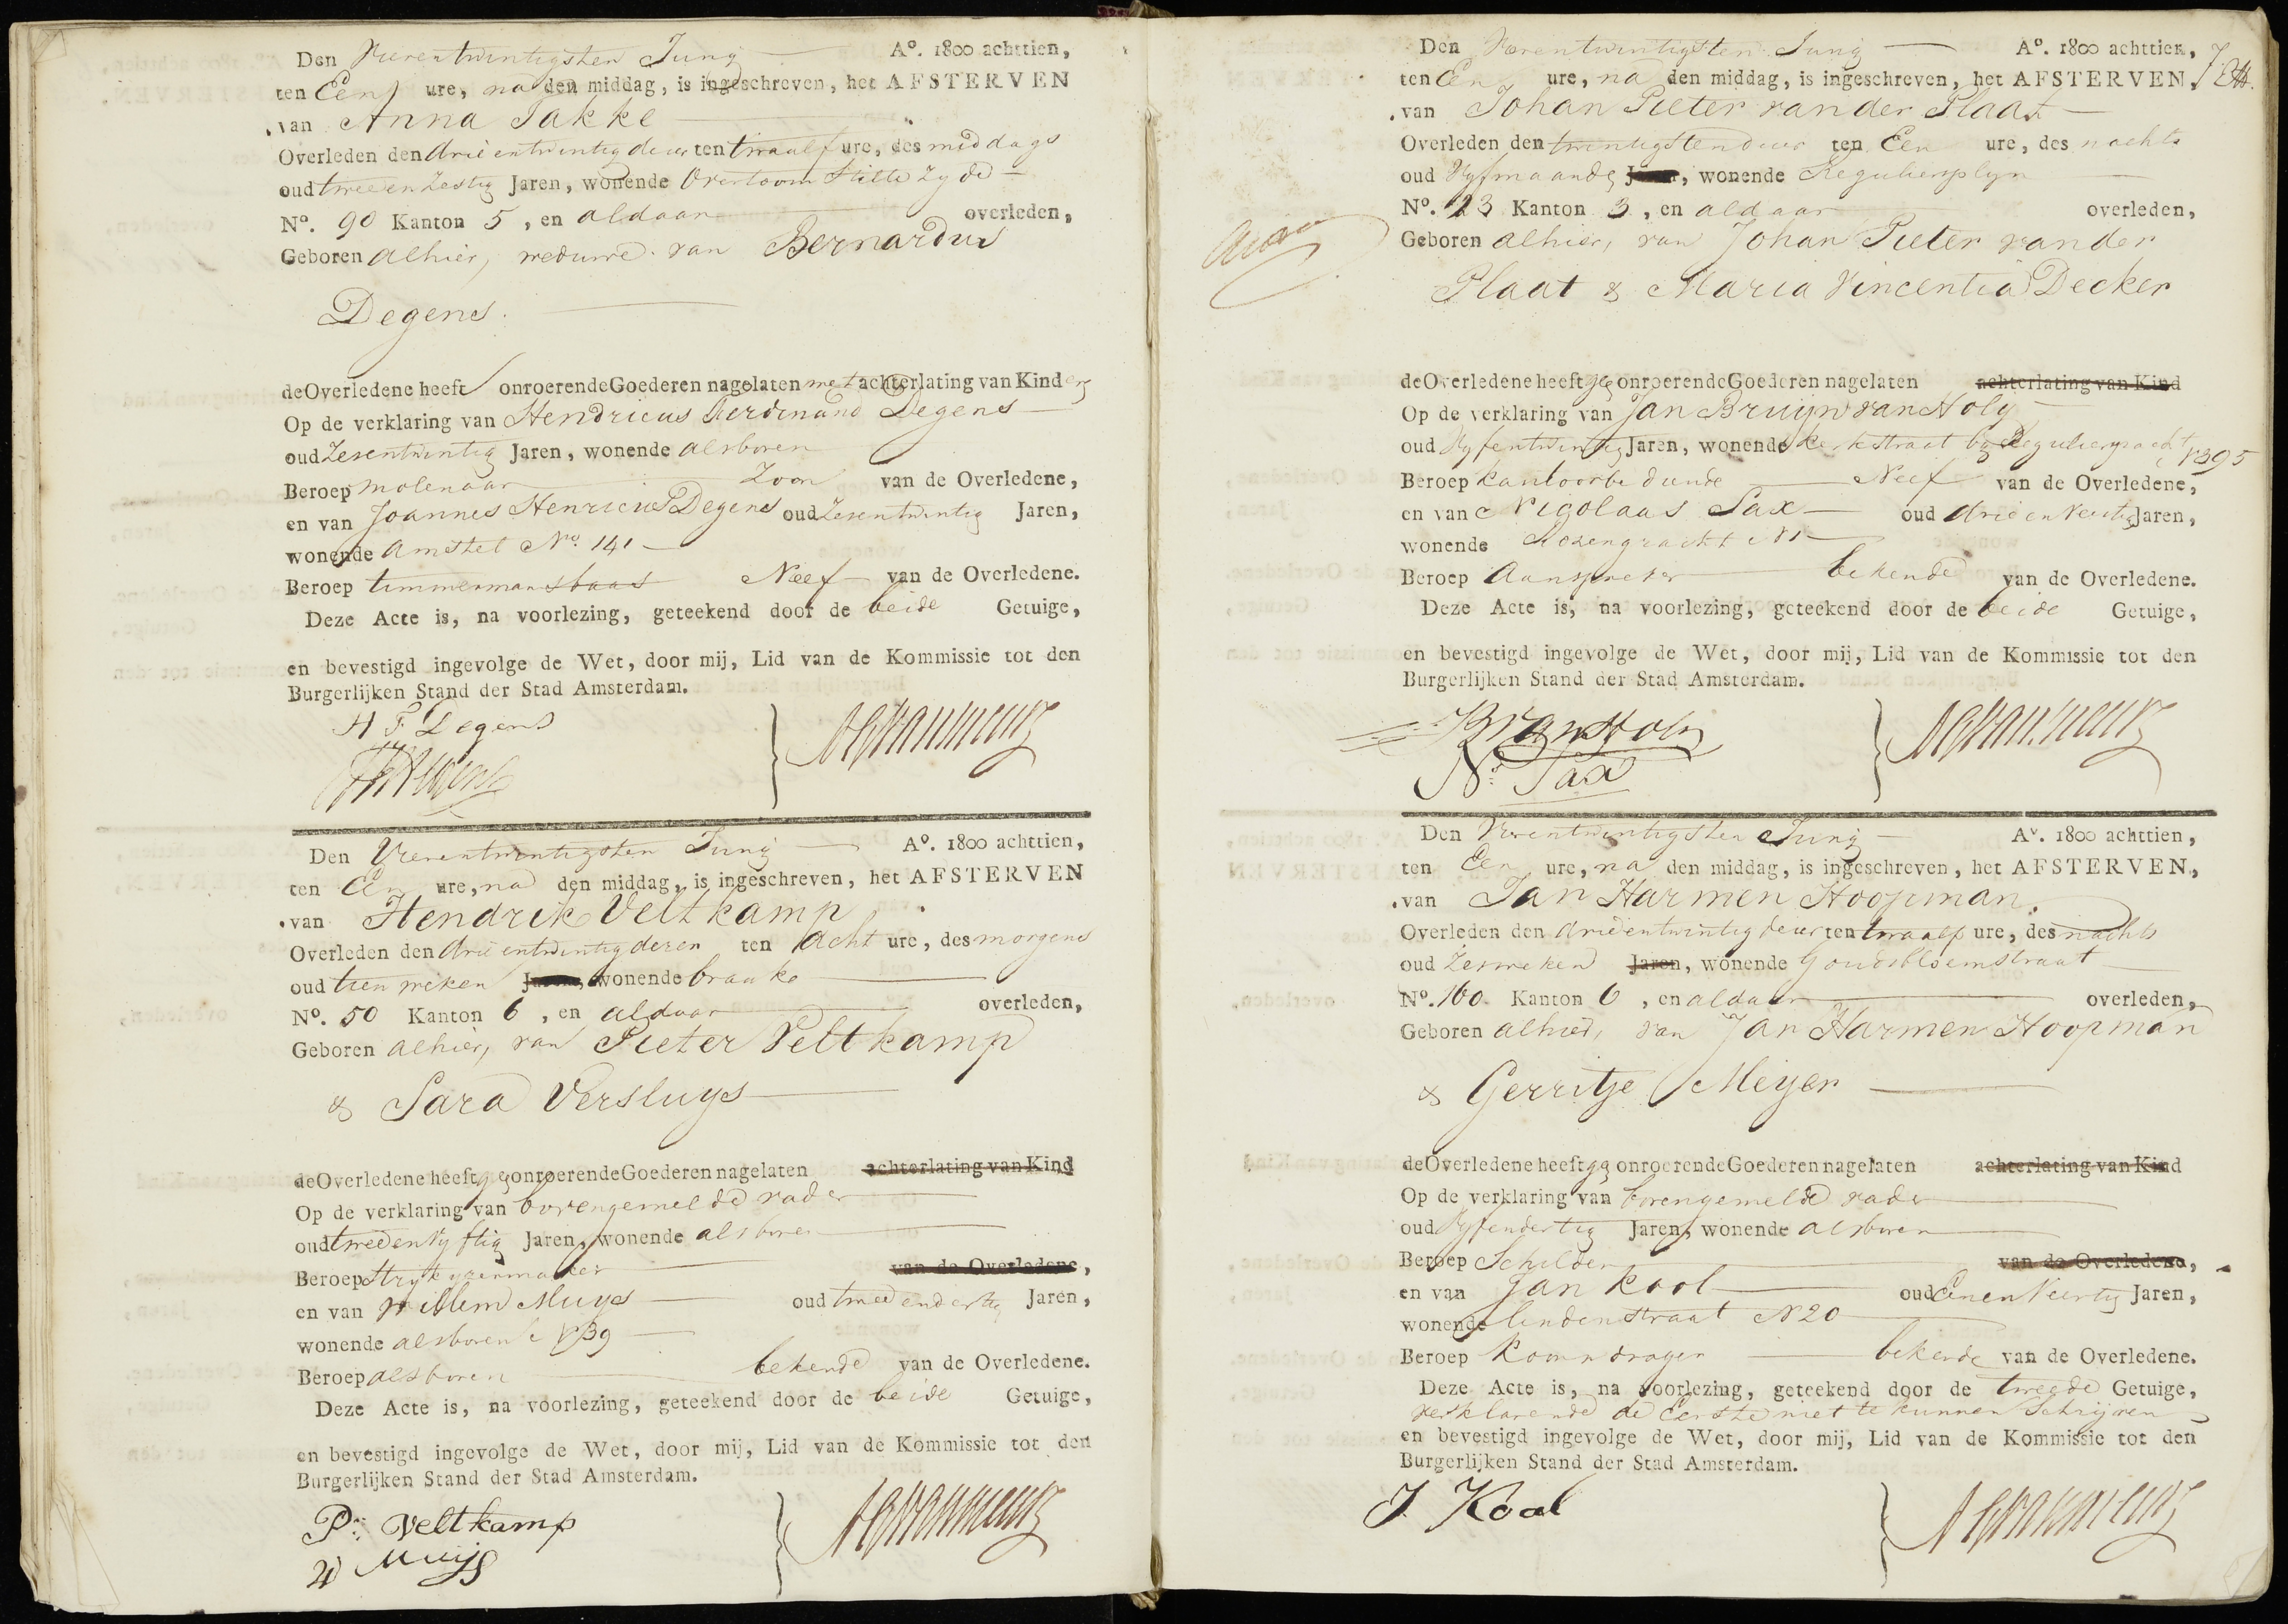 Den Vierentwintigsten Junij A°. 1800 achttien,
ten Een ure, na den middag, is ingeschreven, het AFSTERVEN
van Anna Takke
Overleden den drieentwintig dezer ten twaalf ure, des middags
oud tweeenzestig Jaren, wonende Overtoom Stille Zyde
N°. 90 Kanton 5, en aldaar overleden,
Geboren alhier, weduwe van Bernardus
Degens.
de Overledene heeft onroerende Goederen nagelaten met achterlating van Kinders
Op de verklaring van Hendricus Ferdinand Degens
oud Zesentwintig Jaren, wonende alsboven
Beroep molenaar Zoon van de Overledene,
en van Joannes Henricus Degens oud Zesentwintig Jaren,
wonende Amstel N° 141
Beroep timmermansbaas Neef van de Overledene.
Deze Acte is, na voorlezing, geteekend door de beide Getuige,
en bevestigd ingevolge de Wet, door mij, Lid van de Kommissie tot den
Burgerlijken Stand der Stad Amsterdam.
H F Degens
Den Vierentwintigsten Junij A°. 1800 achttien,
ten Een ure, na den middag, is ingeschreven, het AFSTERVEN
van Hendrik Veltkamp
Overleden den drieentwintig dezer ten acht ure, des morgens
oud tien weken Jaren, wonende braake
N°. 50 Kanton 6, en aldaar overleden,
Geboren alhier, van Pieter Veltkamp
& Sara Versluys
de Overledene heeft gg onroerende Goederen nagelaten achterlating van Kind
Op de verklaring van bovengemelde vader
oud tweeenvyftig Jaren, wonende alsboven
Beroep Strykyzermaker van de Overledene,
en van Willem Muys oud tweeendertig Jaren,
wonende alsboven N39
Beroep alsboven bekende van de Overledene.
Deze Acte is, na voorlezing, geteekend door de beide Getuige,
en bevestigd ingevolge de Wet, door mij, Lid van de Kommissie tot den
Burgerlijken Stand der Stad Amsterdam.
P: Veltkamp
W Muijs
Den Vierentwintigsten Junij A°. 1800 achttien,
ten Een ure, na den middag, is ingeschreven, het AFSTERVEN,
van Johan Pieter van der Plaat
Overleden den twintigsten dezer ten Een ure, des nachts
oud Vyfmaande Jaren, wonende Reguliersplyn
N°. 23 Kanton 3, en aldaar overleden,
Geboren alhier, van Johan Pieter van der
Plaat & Maria Vincentia Decker
de Overledene heeft gg onroerende Goederen nagelaten achterlating van Kind
Op de verklaring van Jan Bruijn van Holy
oud Vyfentwintig Jaren, wonende Kerkstraat by Reguliersgracht N395
Beroep Kantoorbediende Neef van de Overledene,
en van Nigolaas Sax oud drieenVeertig Jaren,
wonende Rozengracht N1
Beroep Aanspreker bekende van de Overledene.
Deze Acte is, na voorlezing, geteekend door de beide Getuige,
en bevestigd ingevolge de Wet, door mij, Lid van de Kommissie tot den
Burgerlijken Stand der Stad Amsterdam.
N: Sax
Den Vierentwintigsten Junij A°. 1800 achttien,
ten Een ure, na den middag, is ingeschreven, het AFSTERVEN,
van Jan Harmen Hoopman.
Overleden den drieentwintig dezer ten twaalf ure, des nachts
oud Zesweken Jaren, wonende Goudsbloemstraat
N°. 160 Kanton 6, en aldaar overleden,
Geboren alhier, van Jan Harmen Hoopman
& Gerritje Meijer
de Overledene heeft gg onroerende Goederen nagelaten achterlating van Kind
Op de verklaring van bovengemelde vader
oud Vyfendertig Jaren, wonende alsboven
Beroep Schilder van de Overledene,
en van Jan Kool oud EenenVeertig Jaren,
wonende lindenstraat N20
Beroep Koorndrager bekende van de Overledene.
Deze Acte is, na voorlezing, geteekend door de tweede Getuige,
verklarende de Eerste niet te kunnen Schrijven
en bevestigd ingevolge de Wet, door mij, Lid van de Kommissie tot den
Burgerlijken Stand der Stad Amsterdam.
J. Kool